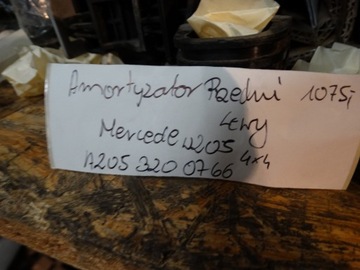 Amortyzator Przedni 1075,-
Lewy
Mercede W205
A205 320 0766 4x4